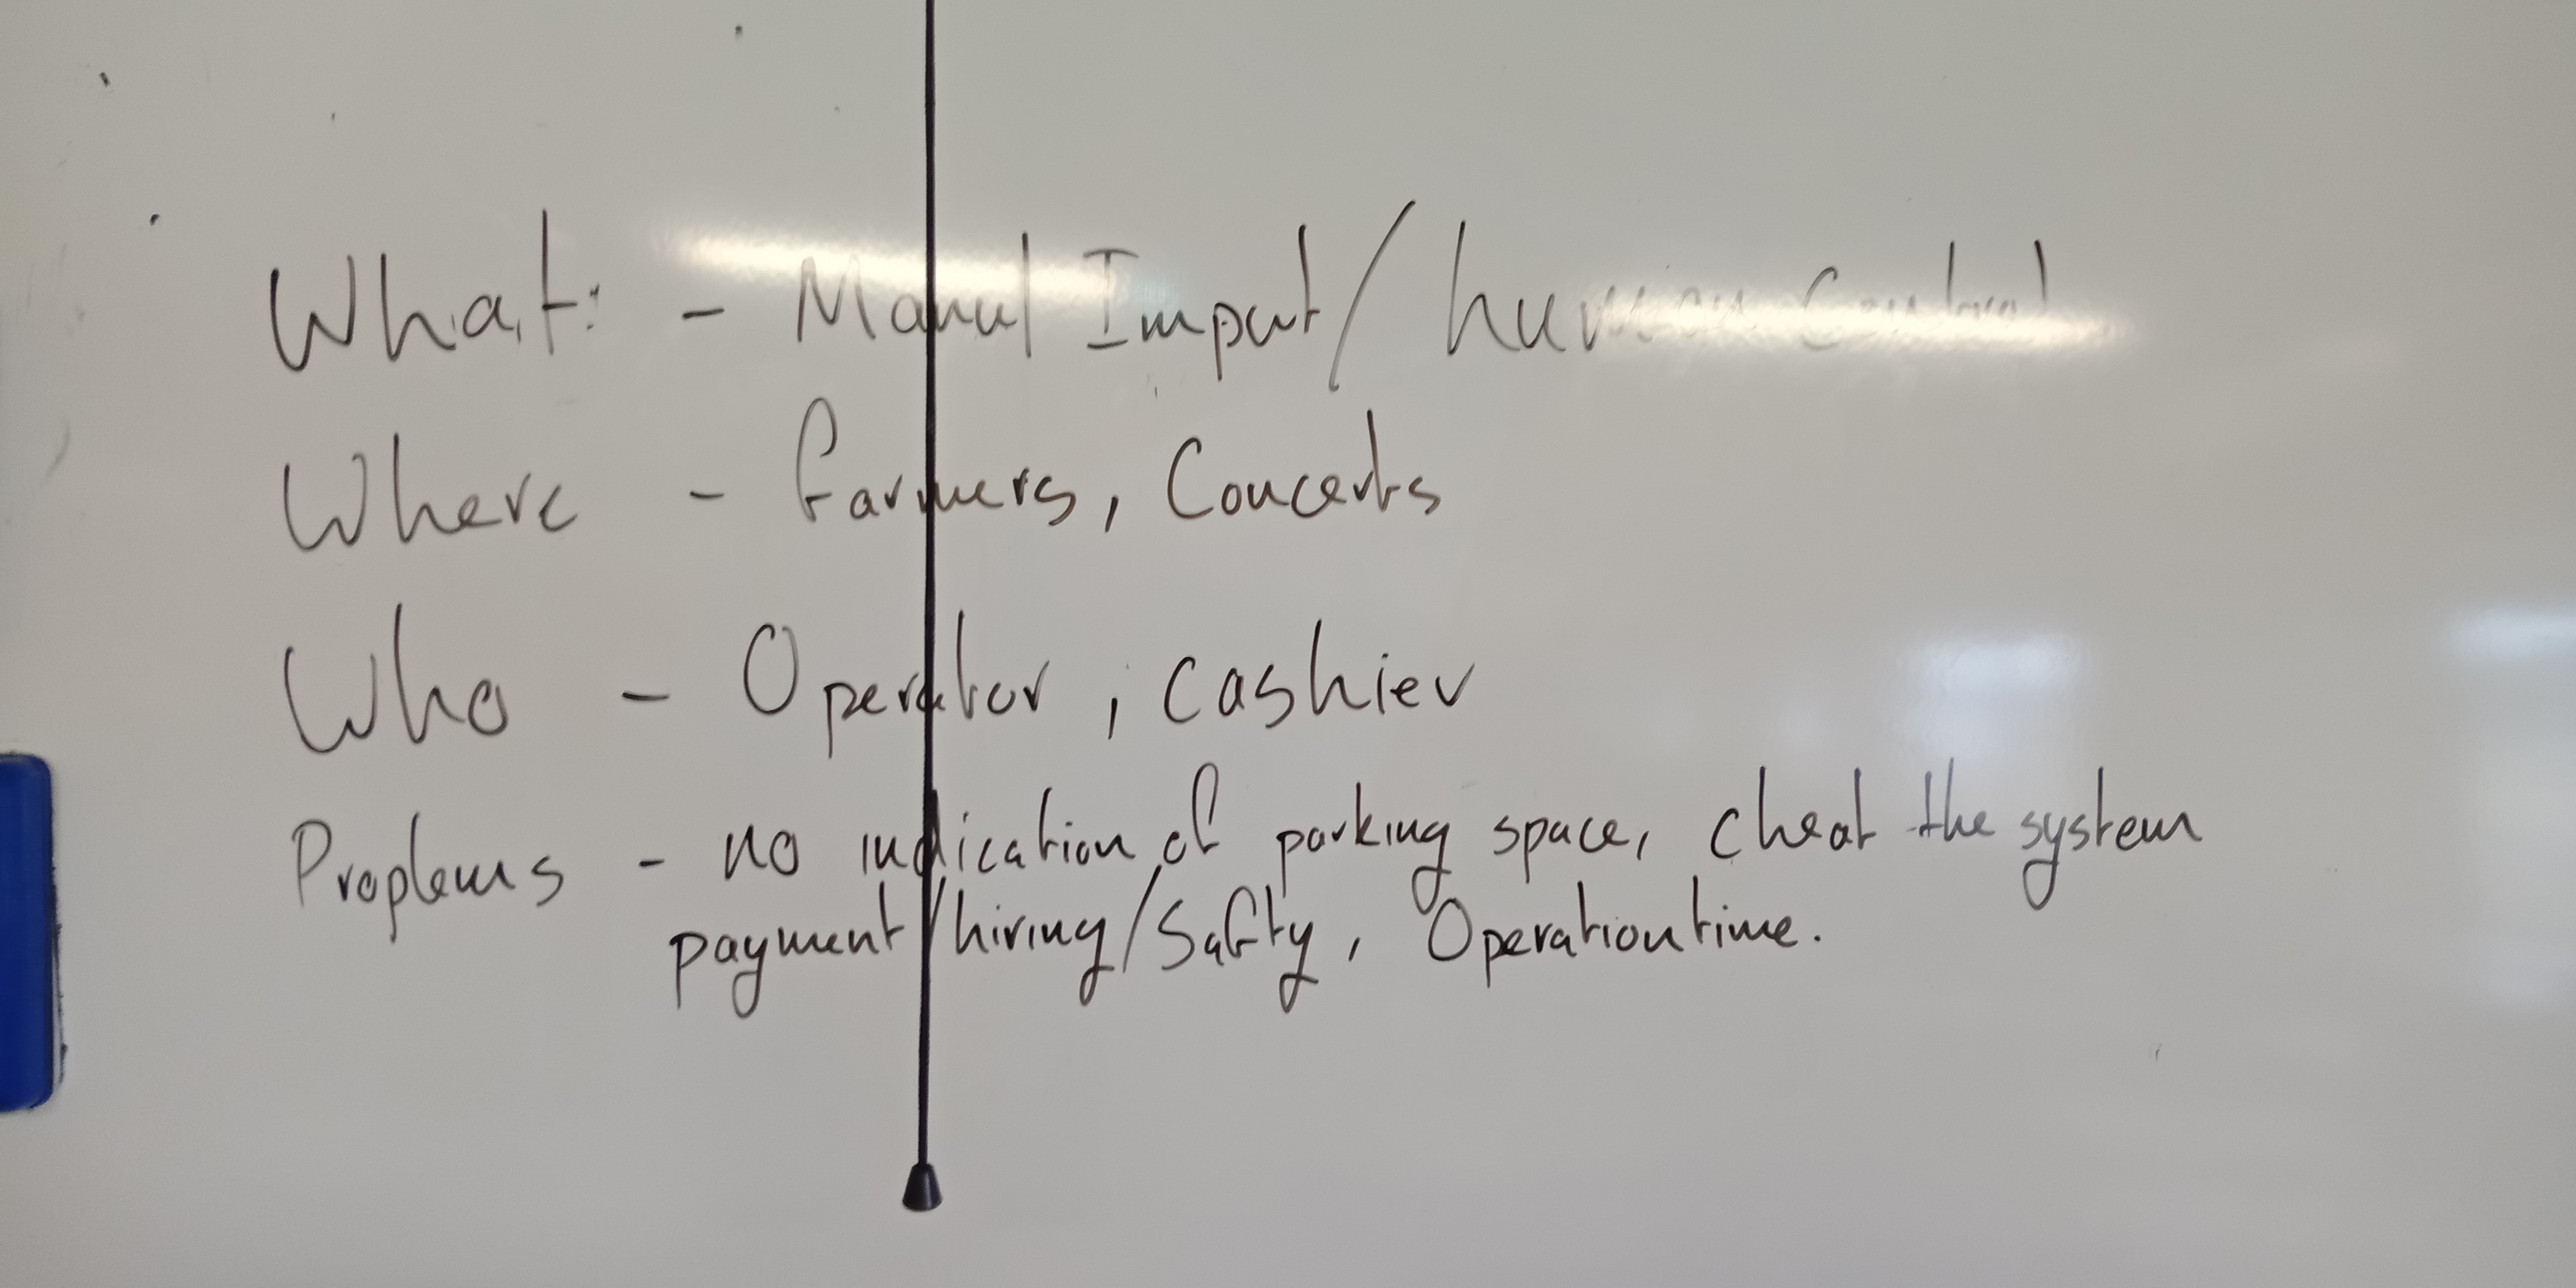 What: - Manul Imput/ human Control
Where - farmers, Concerts
Who - Operator, cashier
Proplems - no indication of parking space, cheat the system
payment/hiring/Safty, Operation time.